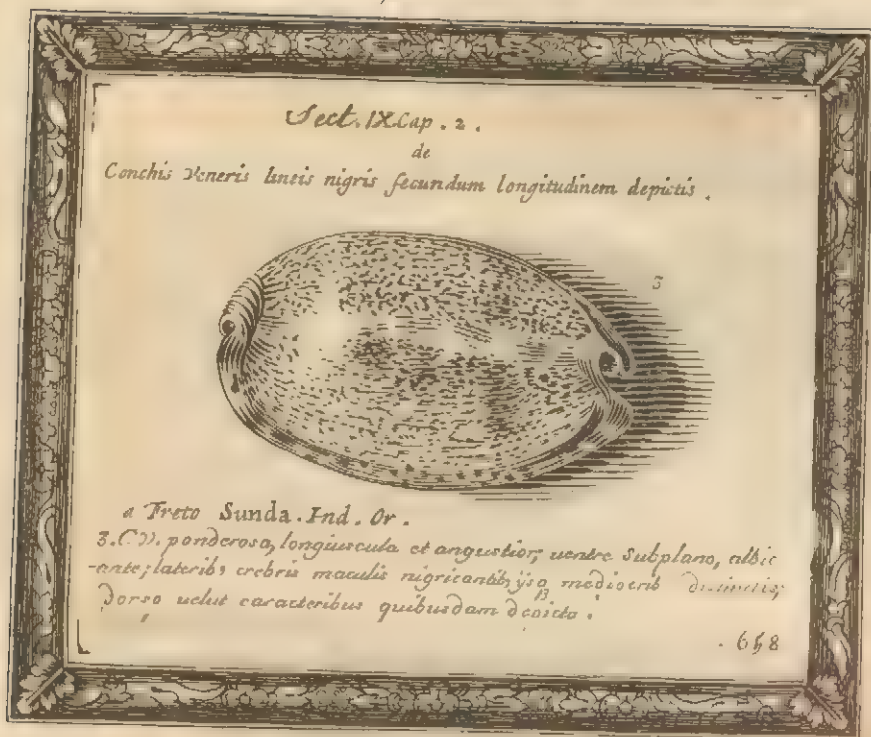 Sect. IX Cap. 2.
de
Conchis Veneris lineis nigris secundum longitudinem depictis.
3
a Freto Sunda. Ind. Or.
3. C.V. ponderosa, longiuscula et angustior, uentre subplano, albic
-ante; laterib, crebris maculis nigricantib, ijsq mediocrib
Dorso uelut caracteribus quibusdam depicto.
B
. 658